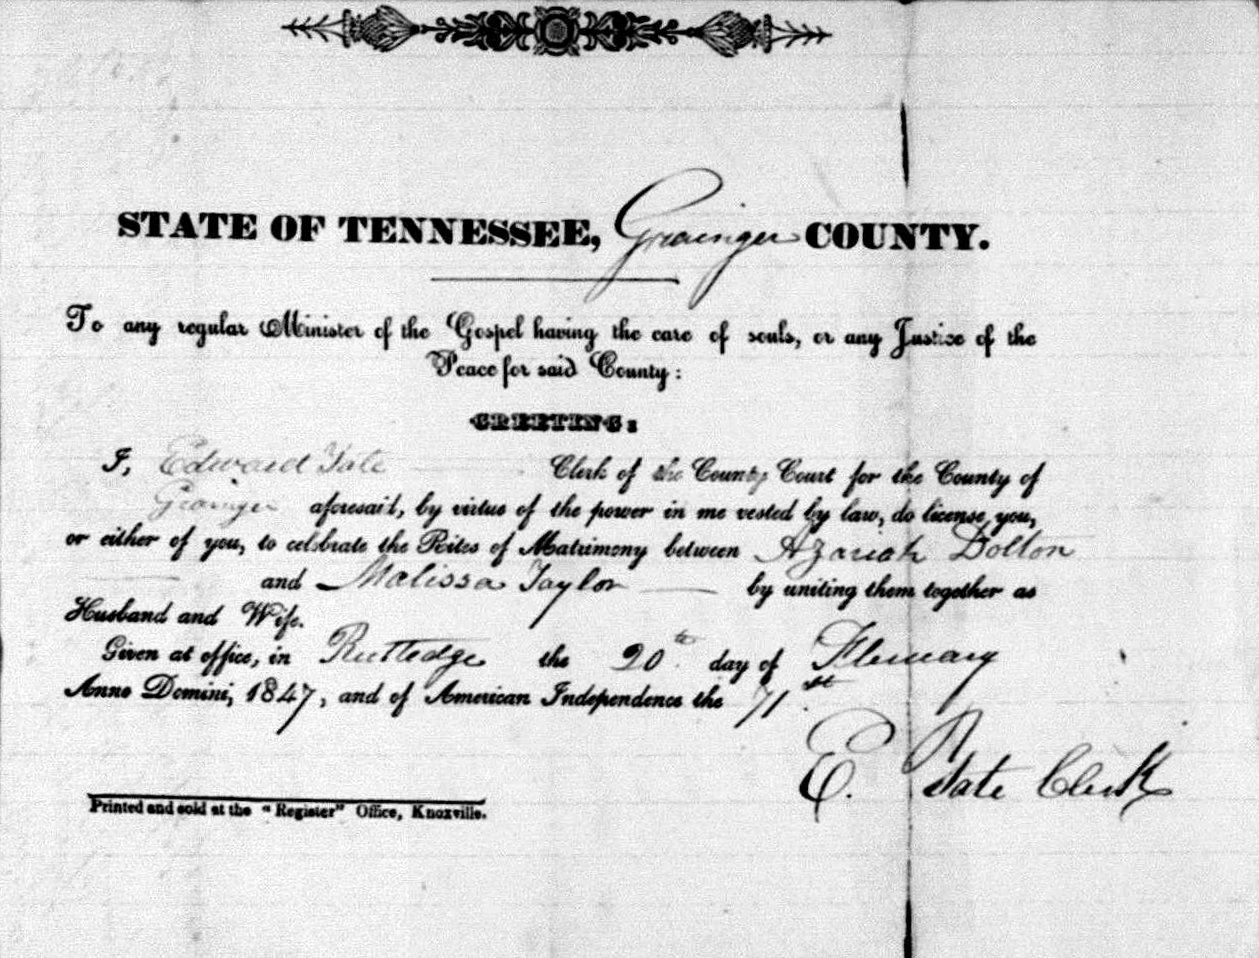 STATE OF TENNESSEE, Grainger COUNTY.
To any regular Minister of the Gospel having the care of souls, or any Justice of the
Peace for said County:
GREETING:
I, Edward Tate Clerk of the County Court for the County of
Grainger aforesaid, by virtue of the power in me vested by law, do license you,
or either of you, to celebrate the Rites of Matrimony between Azariah Dolton
and Malissa Taylor by uniting them together as
Husband and Wife.
Given at office, in Rutledge the 20th day of Februrary
Anno Domini, 1847, and of American Independence the 71st
E. Tate Clerk
Printed and sold at the "Register" Office, Knoxville.